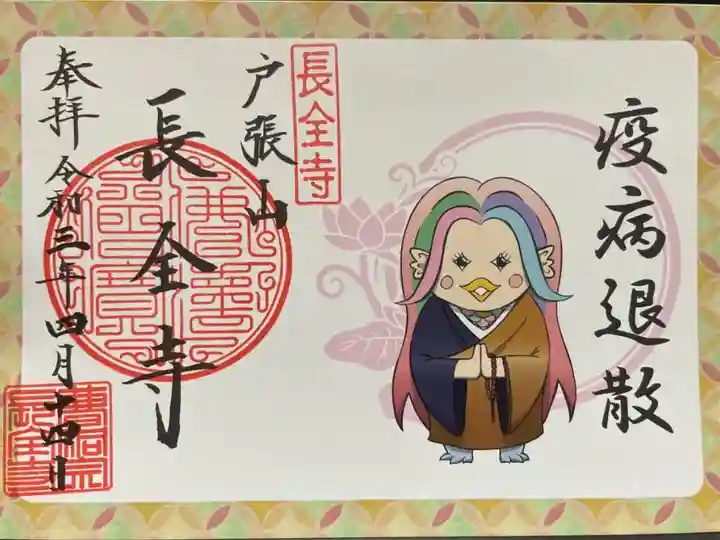 疫病退散
長全寺
戸張山
長全寺
奉拝 令和三年四月十四日